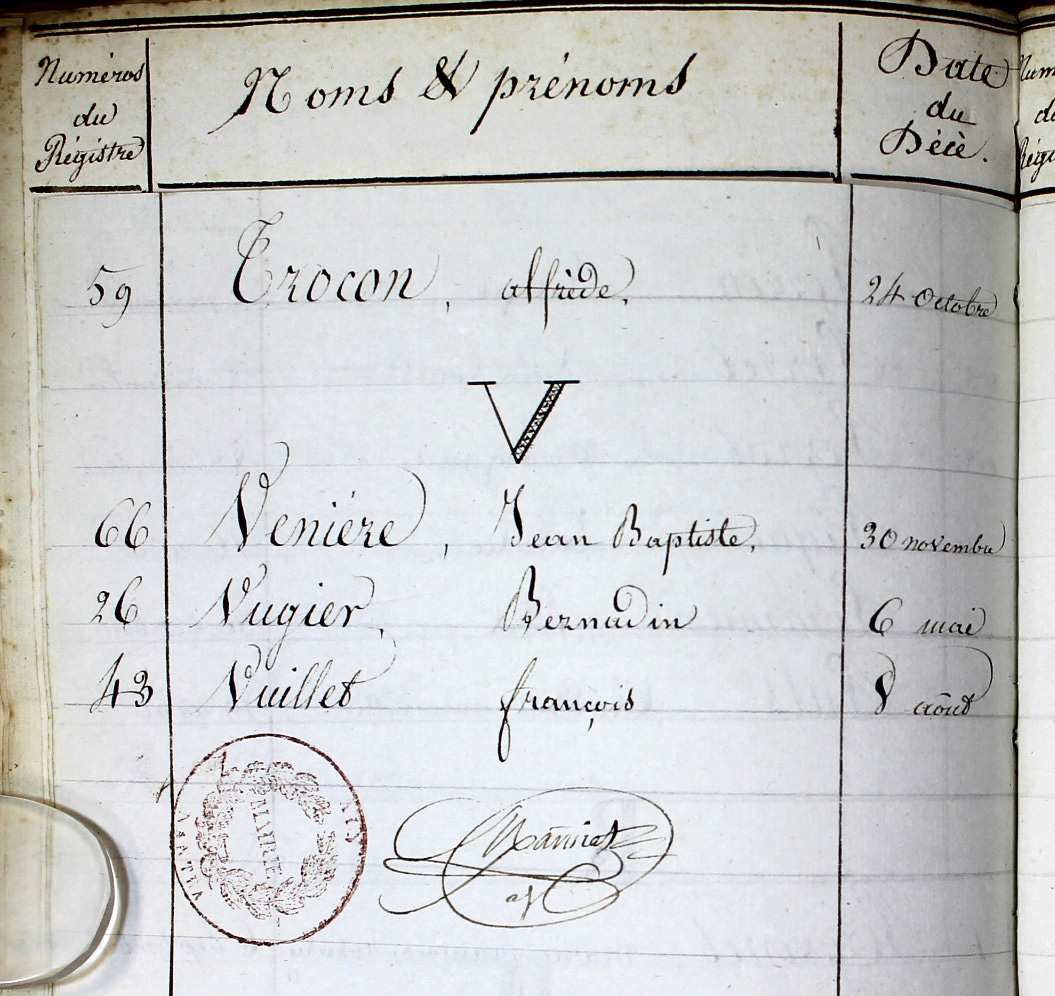 Numéros du Régistre
Noms & prénoms
Date du Décè.
59 Trocon, alfrède, 24 Octobre
V
66 Veniére, Jean Baptiste, 30 novembre
26 Vugier, Bernadin 6 mai
43 Vuillet françois 8 août
MAIRIE
AIN